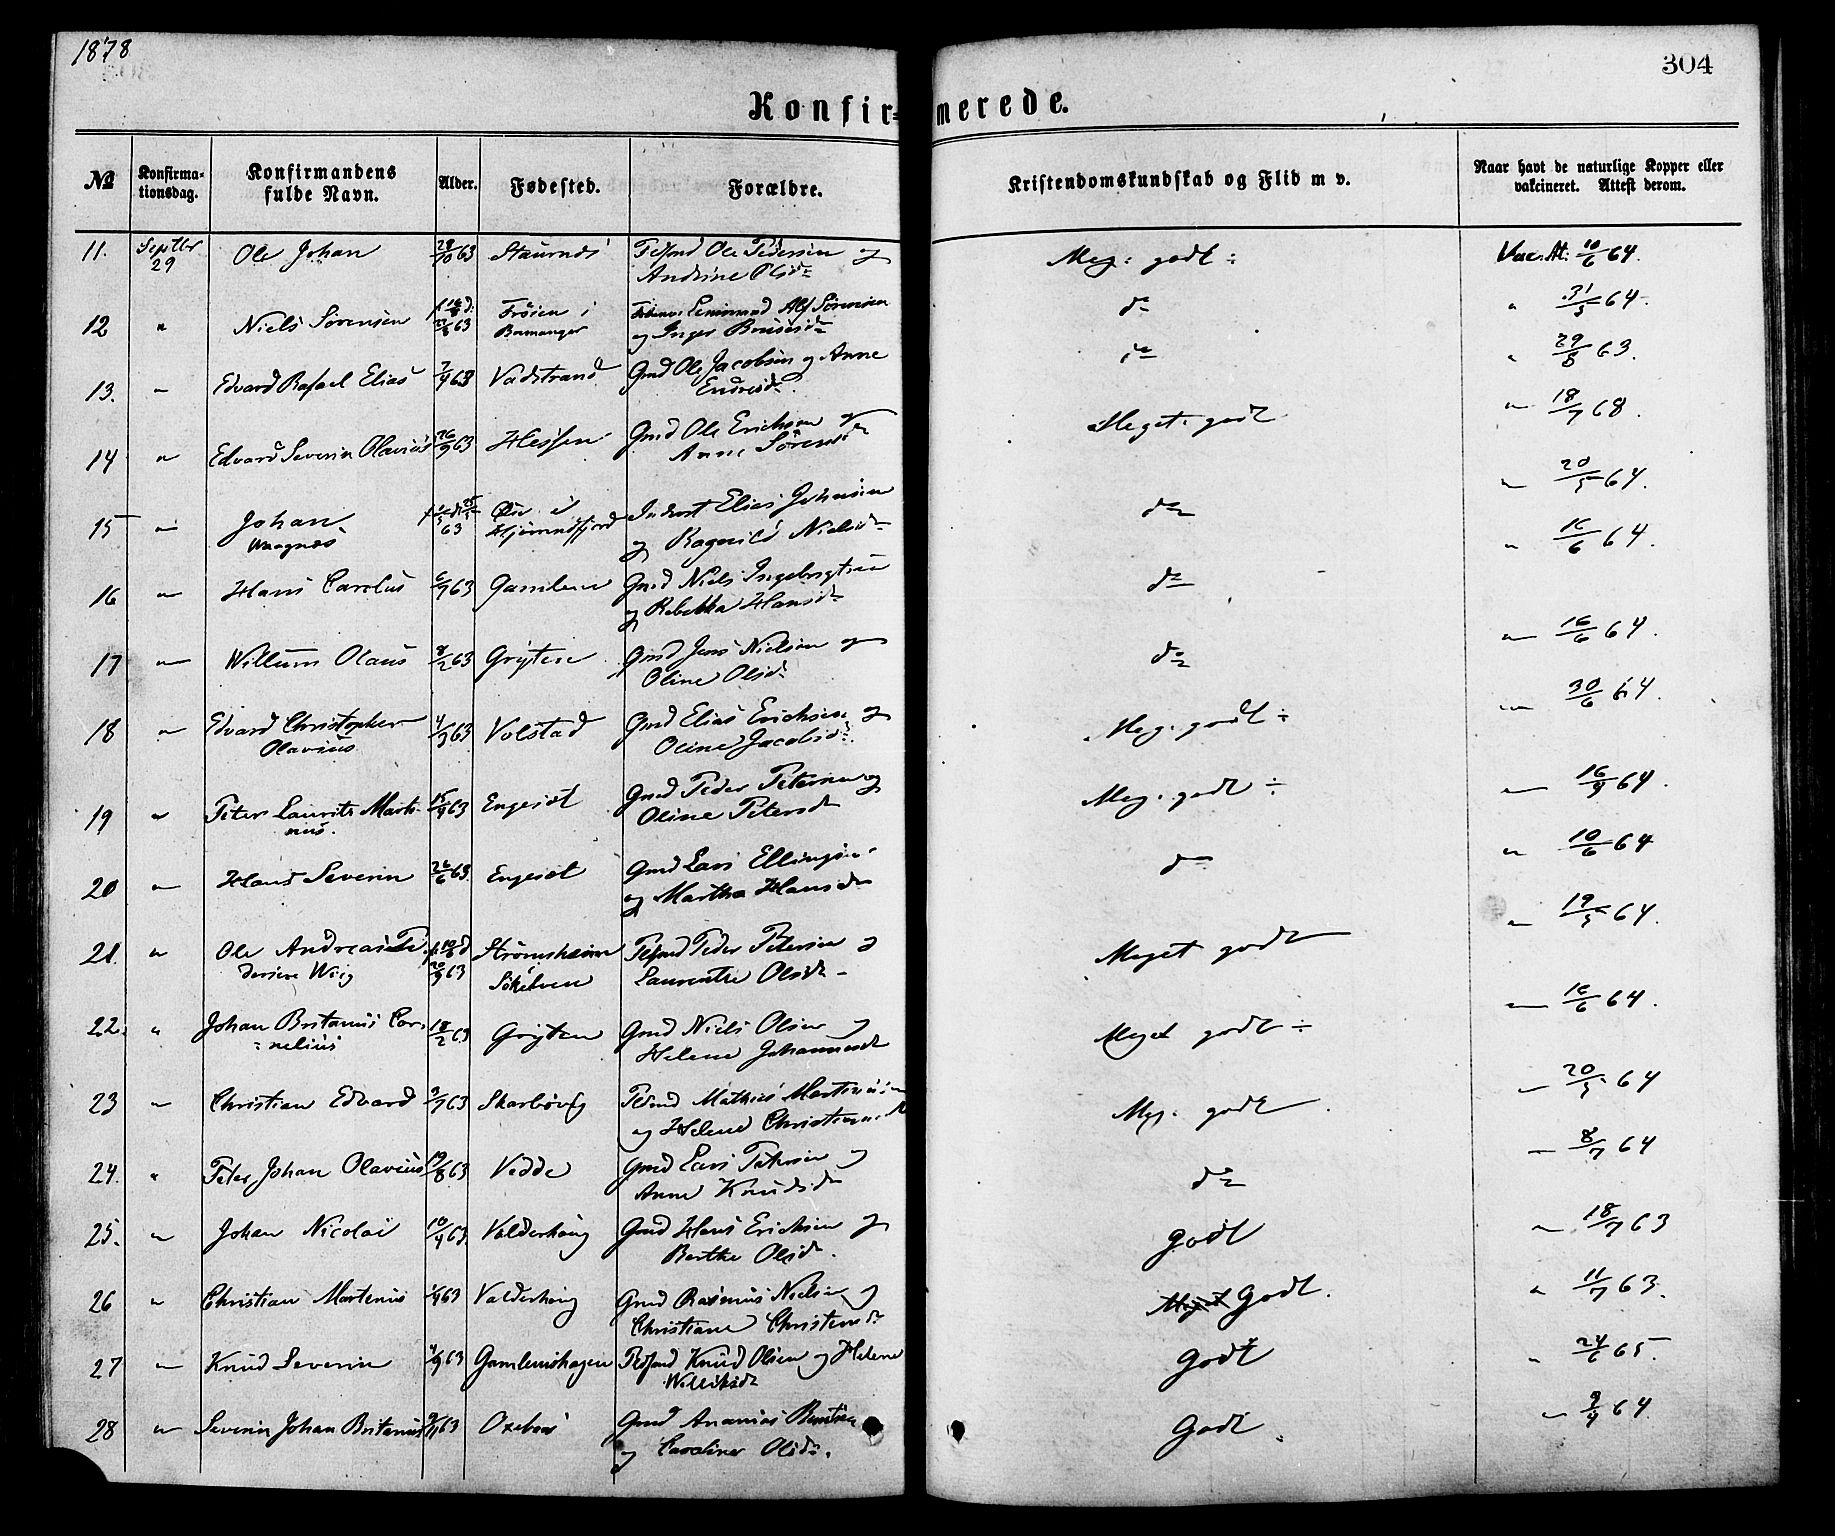 1878
304
Konfir=merede.
№ Konfirma-tionsdag. Konfirmandens fulde Navn. Alder. Fødested. Forældre. Kristendomskundskab og Flid m v. Naar havt de naturlige Kopper eller vakcineret. Attest derom.
11. Septbr 29 Ole Johan 63 Stavnæs Ole Pedersen og Meg: godt ÷ Vac. At: 10/6 64.
Andrine Olsd
12 " Niels Sørensen 63 Frøien i Bremanger Alf Sørensen do " 31/5 64.
og Inger
13. " Edvard Rafael Elias 63 Vadstrand Gmd Ole Jacobsen og Anne do " 29/8 63.
Endresd
14 " Edvard Severin Olavius 26/9 63 Hessen Gmd Ole Erichsen og Meget godt " 18/7 68.
Anne Sørensd
15 " Johan 63 i Hjørundfjord Inderst Elias Johnsen do " 20/5 64.
Magnus og Ragnild Nielsd
16 " Hans Carolus 63 Gamlem Gmd Niels Ingebrigtsen do " 16/6 64.
og Rebekka Hansd
17 " Willum Olaus 63 Gryten Gmd Jens Nielsen og do " 16/6 64.
Oline Olsd
18 " Edvard Christopher 63 Volstad Gmd Elias Erichsen og Meg. godt ÷ " 30/6 64.
Olavius Oline Jacobsd
19 " Peter Laurits Marti- 63 Engeset Gmd Peder Petersen og Meg. godt ÷ " 16/9 64.
nus. Oline Petersd
20 " Hans Severin 26/6 63 Engeset Gmd Lars Ellingsen do " 10/6 64
og Martha Hansd
21. " Ole Andreas Pe- 63 Strømsheim Peder Petersen og Meget godt " 19/5 64.
dersen Wiig Søkelven Laurentse Olsd
22. " Johan Britanus Cor- 18/2 63 Grytten Gmd Niels Olsen og Meget godt ÷ " 16/6 64.
=nelius Helene Johannesd
23 " Christian Edvard 63 Skarbøvig Mathias Martinus Meg. godt " 20/5 64
og Helene
24. " Peter Johan Olavius 63 Vedde Gmd Lars Petersen og do " 8/7 64
Anne Knudsd
25. " Johan Nicolai 10/4 63 Valderhoug Gmd Hans Erichsen og godt " 18/7 63
Berthe Olsd.
26 " Christian Martinus 63 Valderhoug Gmd Rasmus Nielsen og Meget Godt. " 11/7 63.
Christiane
27 " Knud Severin 63 Gamlemshagen Knud Olsen og Helene Godt " 24/6 65.
28 " Severin Johan Britanus 63 Oxebaas Gmd Ananias Godt. " 9/9 64.
og Caroline Olsd.